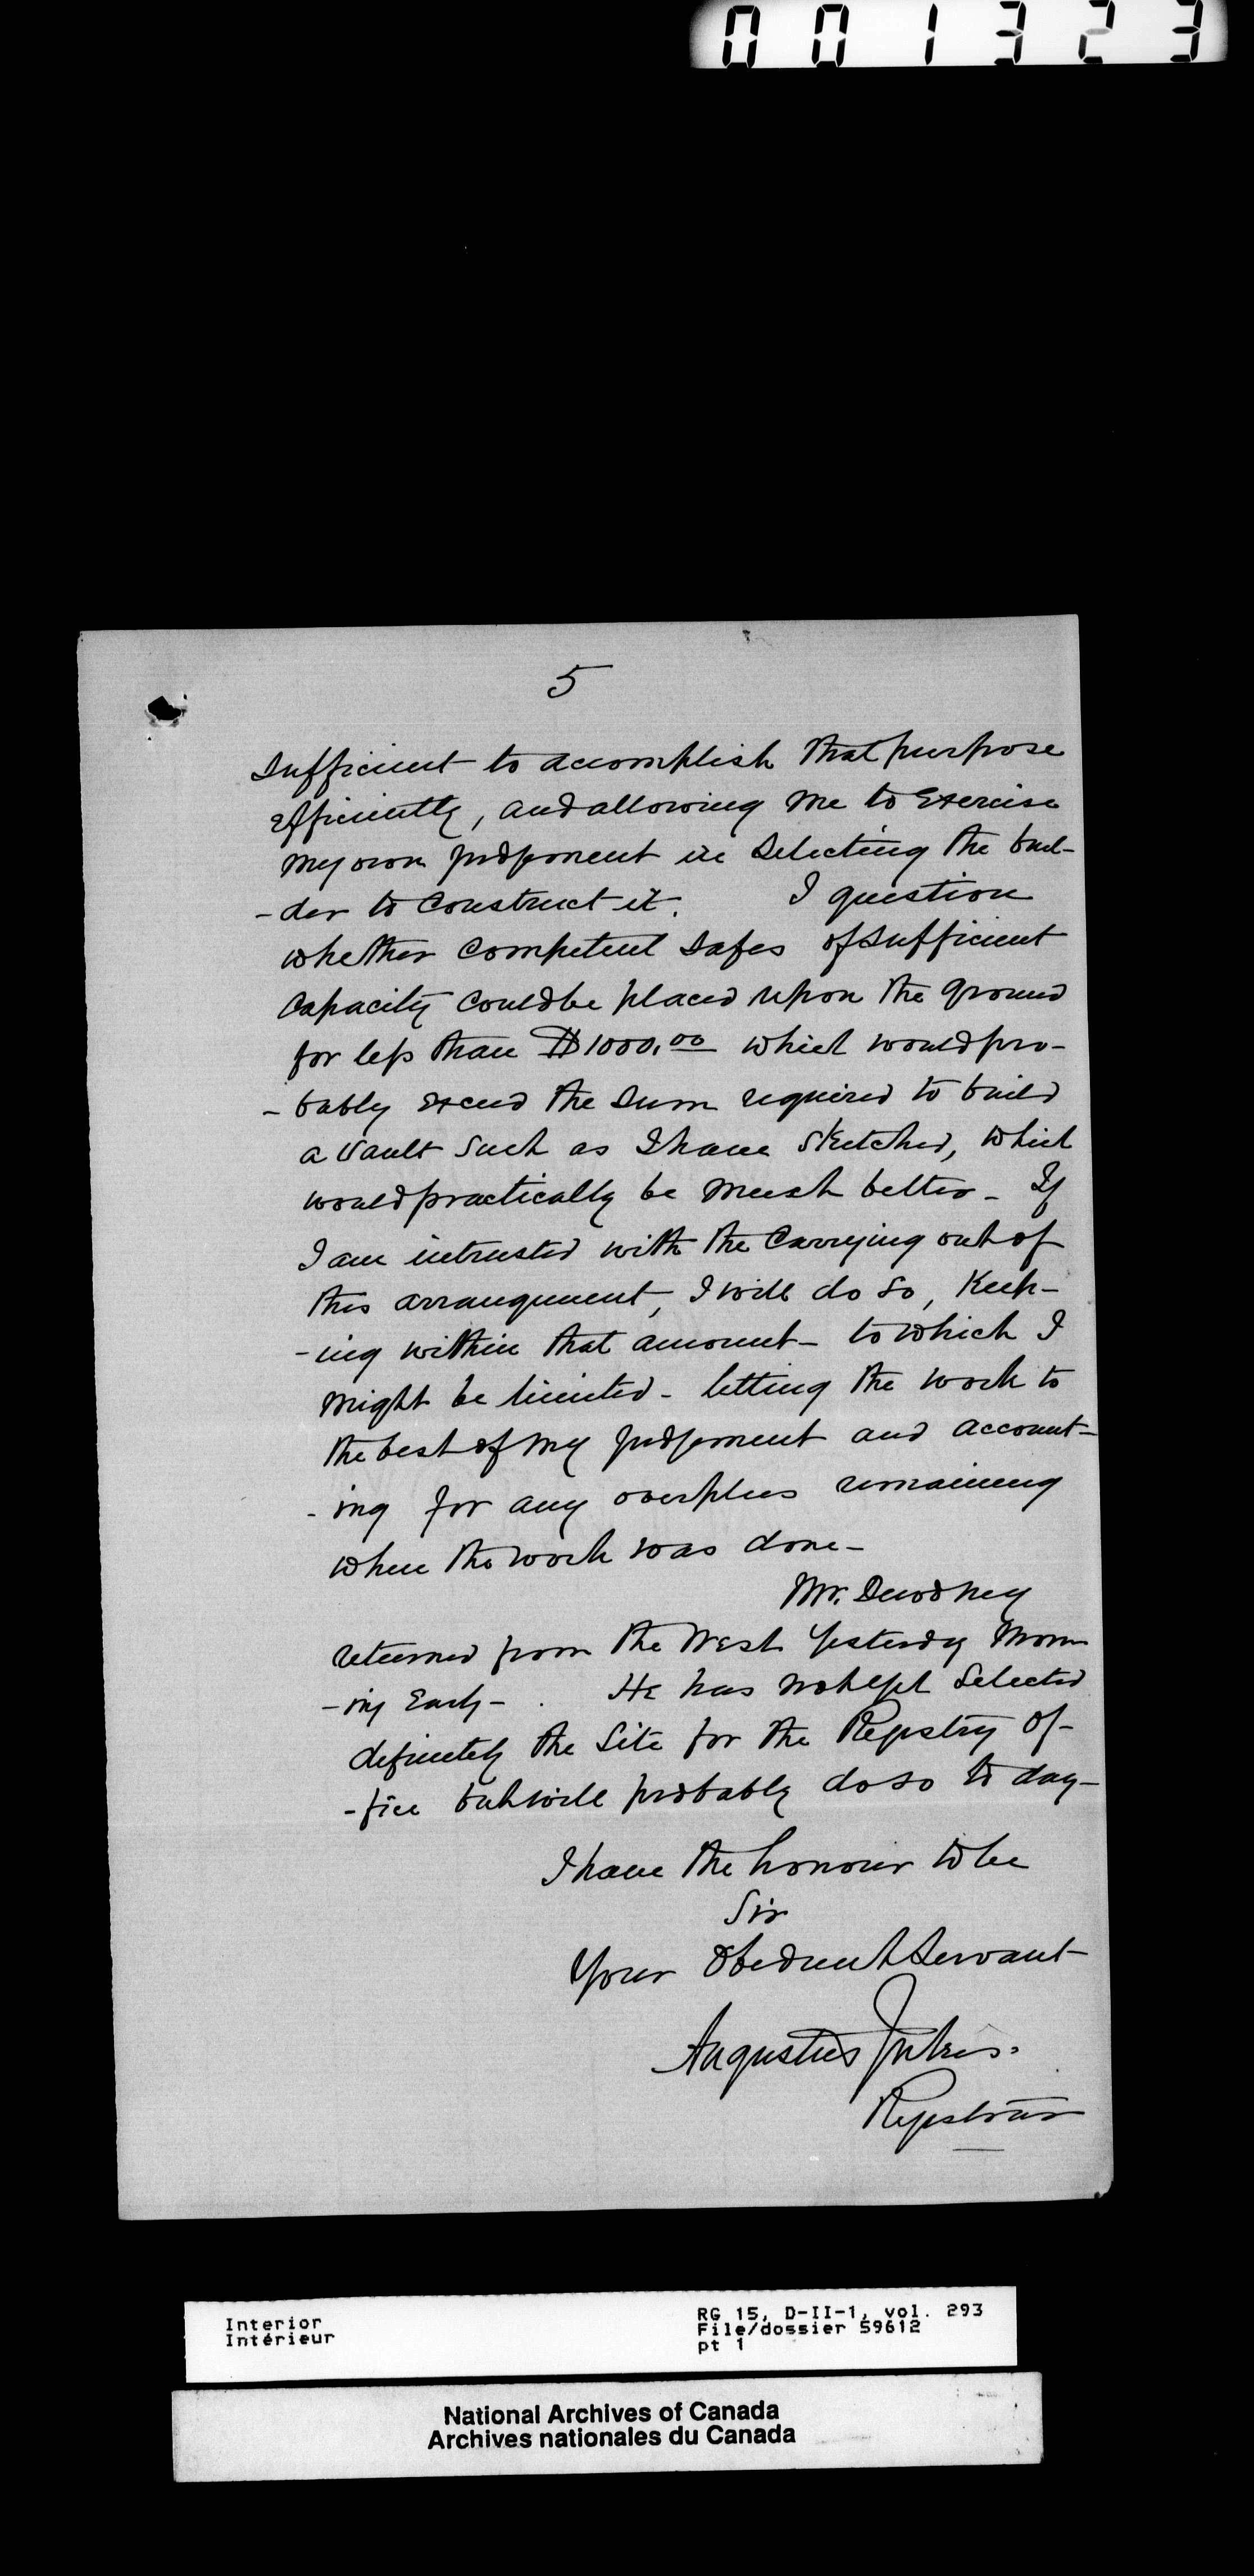 001323
5
sufficient to accomplish that purpose
efficiently, and allowing me to exercise
my own judgement in selecting the buil-
-der to construct it. I question
whether competent safes of sufficient
capacity could be placed upon the ground
for less than $1000.00 which would pro-
-bably exceed the sum required to build
a vault such as I have sketched, which
would practically be much better - If
I am intrusted with the carrying out of
this arrangement, I will do so, keep-
-ing within that amount - to which I
might be limited - letting the work to
the best of my judgement and account-
-ing for any overplus remaining
when the work was done -
Mr. Dewdney
returned from the West yesterday morn
-ing early - . He has not yet selected
definitely the site for the Registry Of-
-fice but will probably do so to day -
I have the honour to be
Sir
Your Obedient Servant
Augustus Jukes.
Registrar
Interior
Intérieur
RG 15, D-II-1, vol. 293
File/dossier 59612
pt 1
National Archives of Canada
Archives nationales du Canada